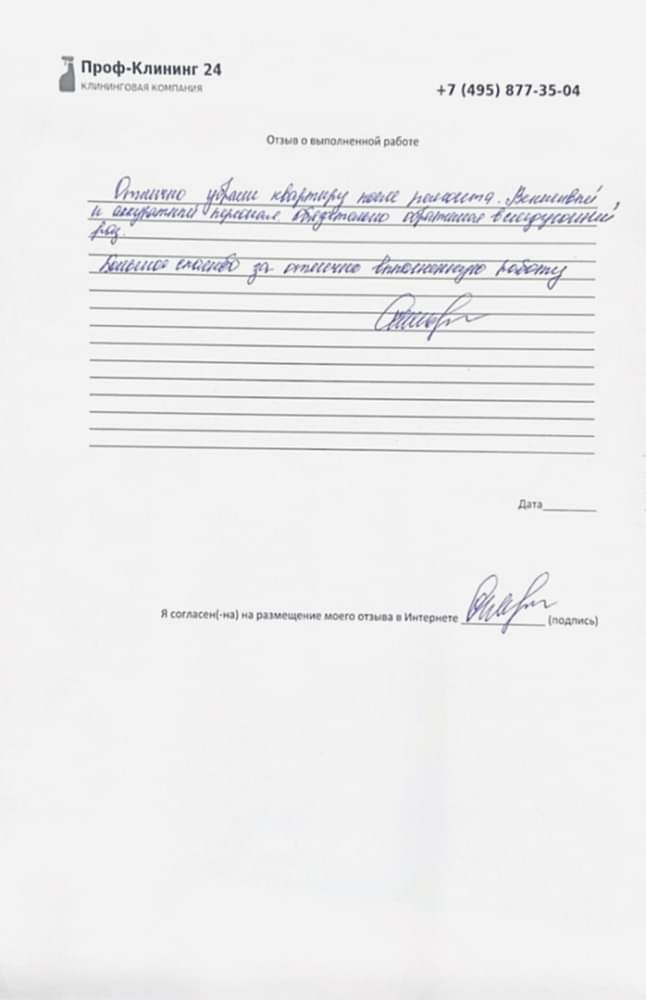 Проф-Клининг 24
КЛИНИНГОВАЯ КОМПАНИЯ
+7 (495) 877-35-04
Отзыв о выполненной работе
Отлично убрали квартиру после ремонта. Вежливый,
и аккуратный персонал обязательно обратимся в следующий
раз.
Большое спасибо за отлично выполненную работу
Дата
Я согласен(-на) на размещение моего отзыва в Интернете (подпись)